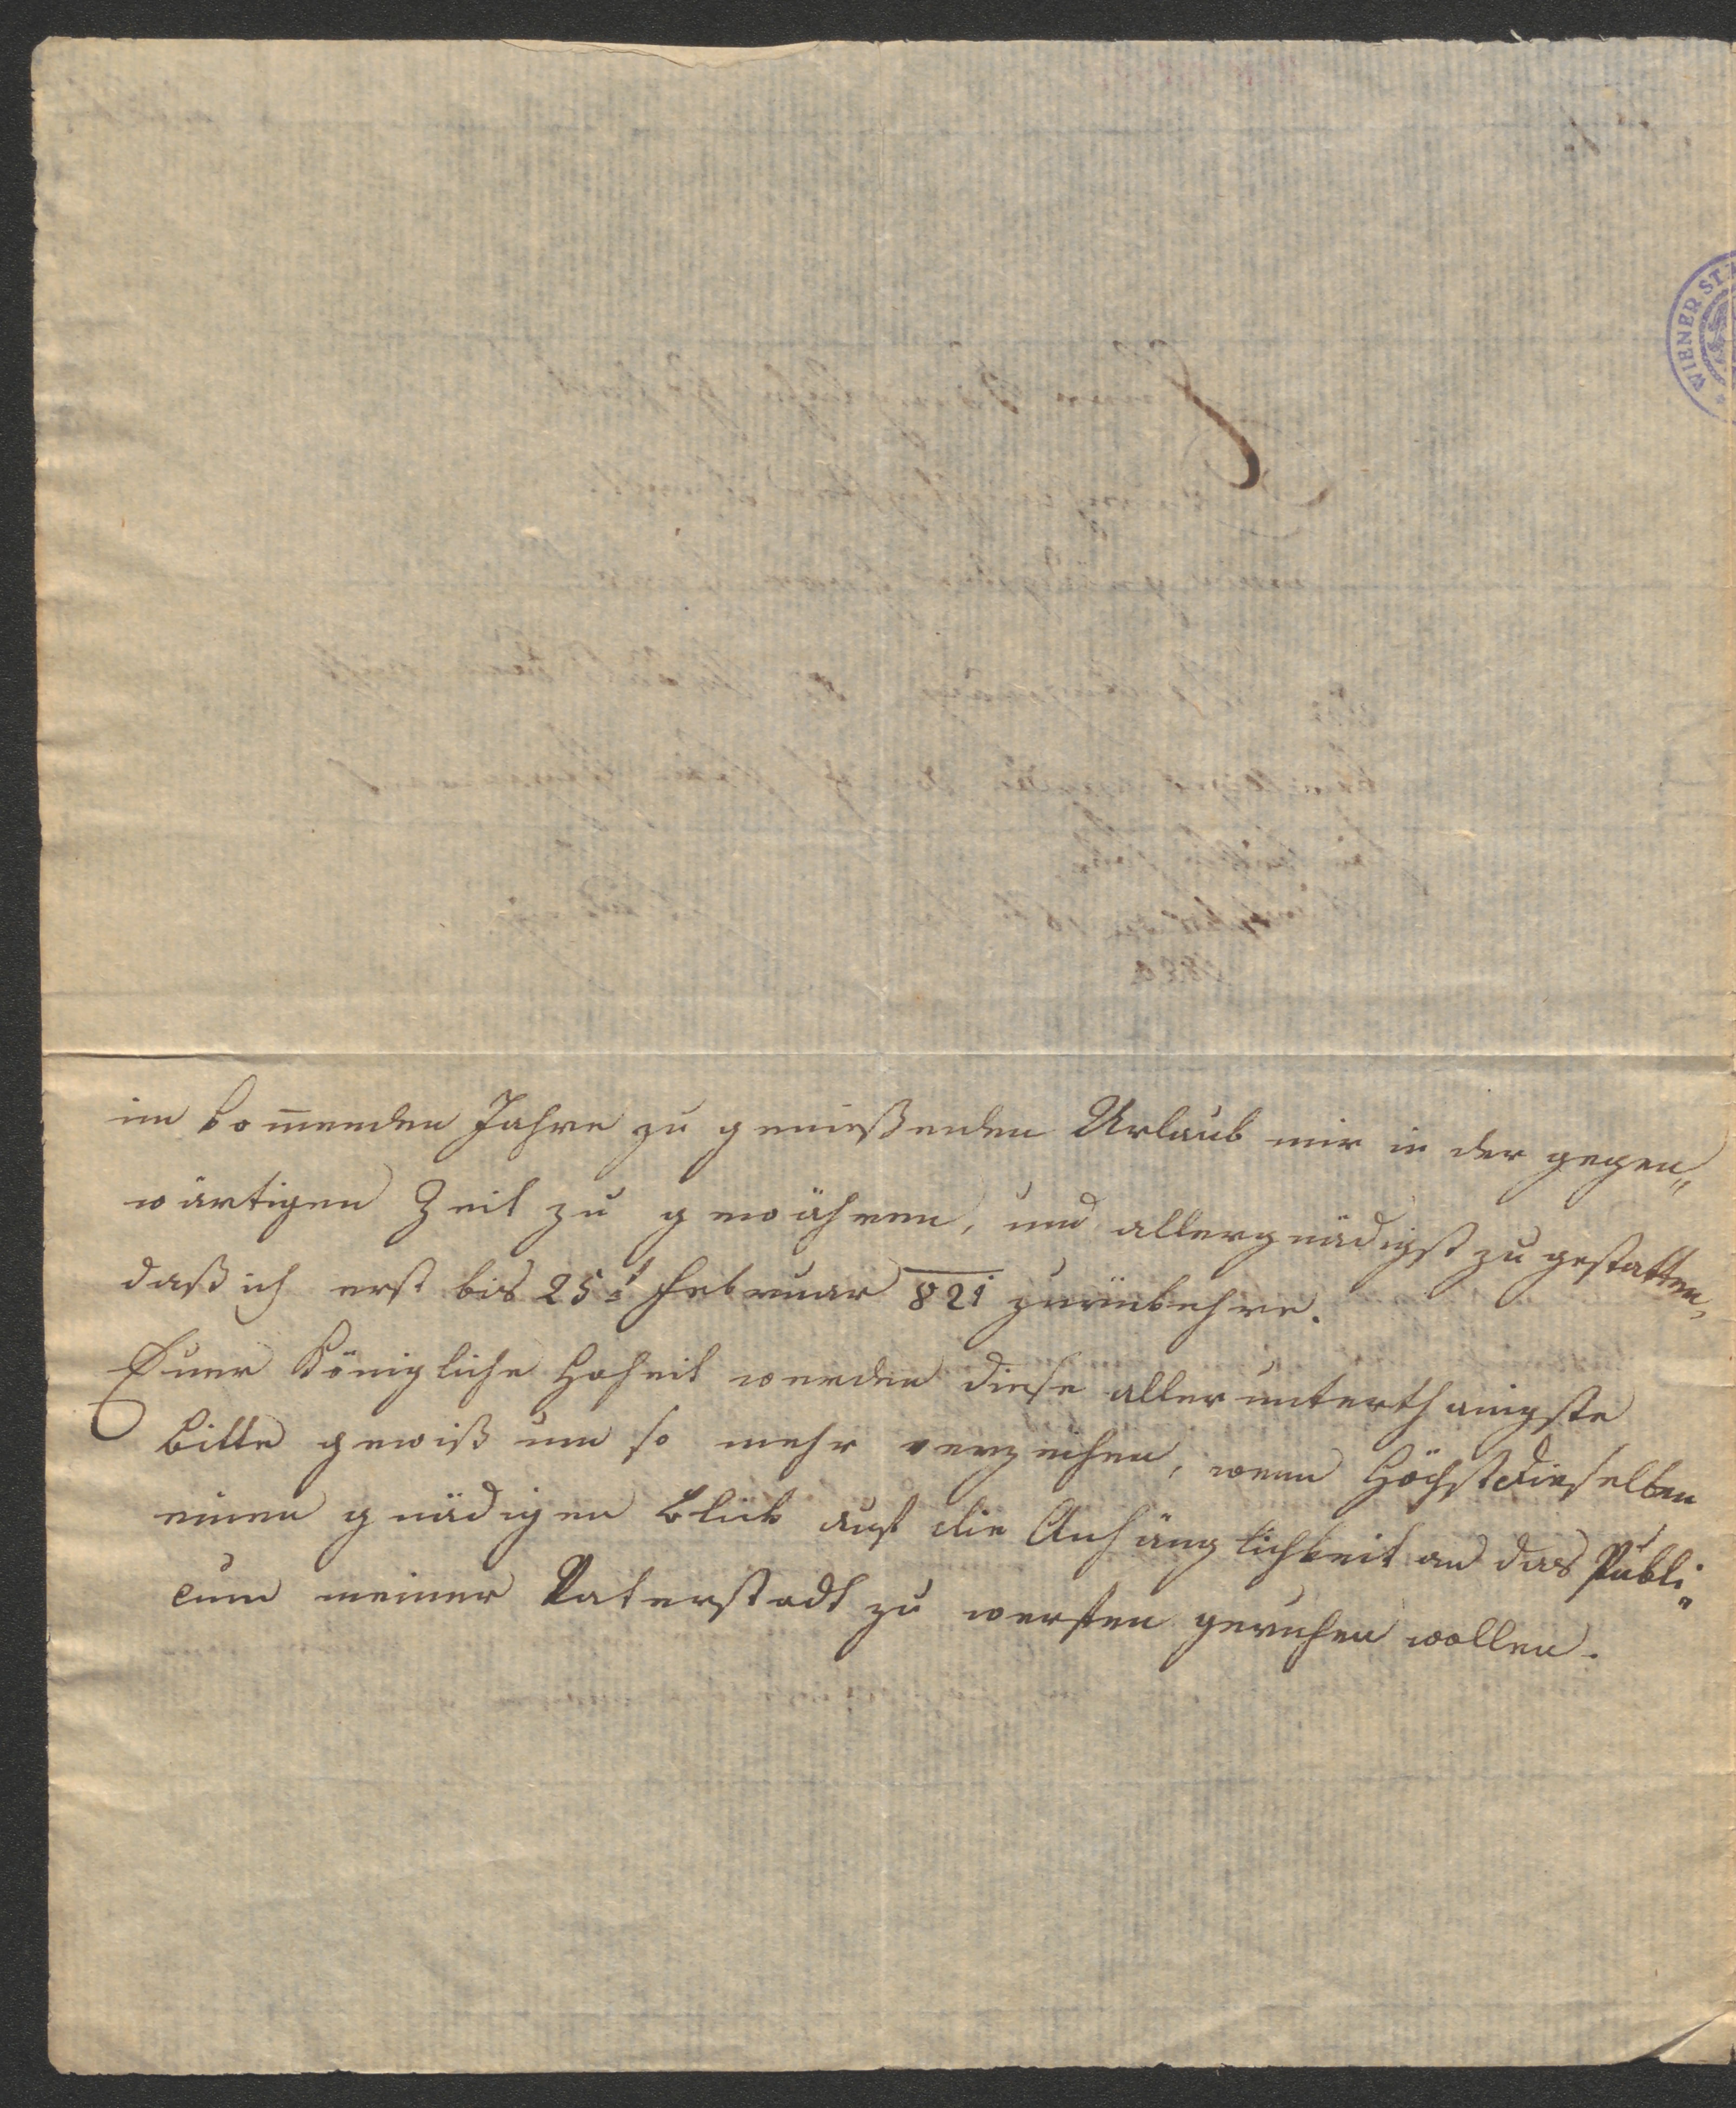 WIENER ST
im kom̄enden Jahre zu genießenden Urlaub mir in der gegen„
wärtigen Zeit zu gewähren, und allergnädigst zu gestatten,
daß ich erst bis 25t Februar 821 zurückkehre.
Euer Königliche Hoheit werden diese allerunterthänigste
Bitte gewiß um so mehr verzeihen, wenn Höchstdieselben
einen gnädigen Blick auf die Anhänglichkeit an das Publi„
cum meiner Vaterstadt zu werfen geruhen wollen.